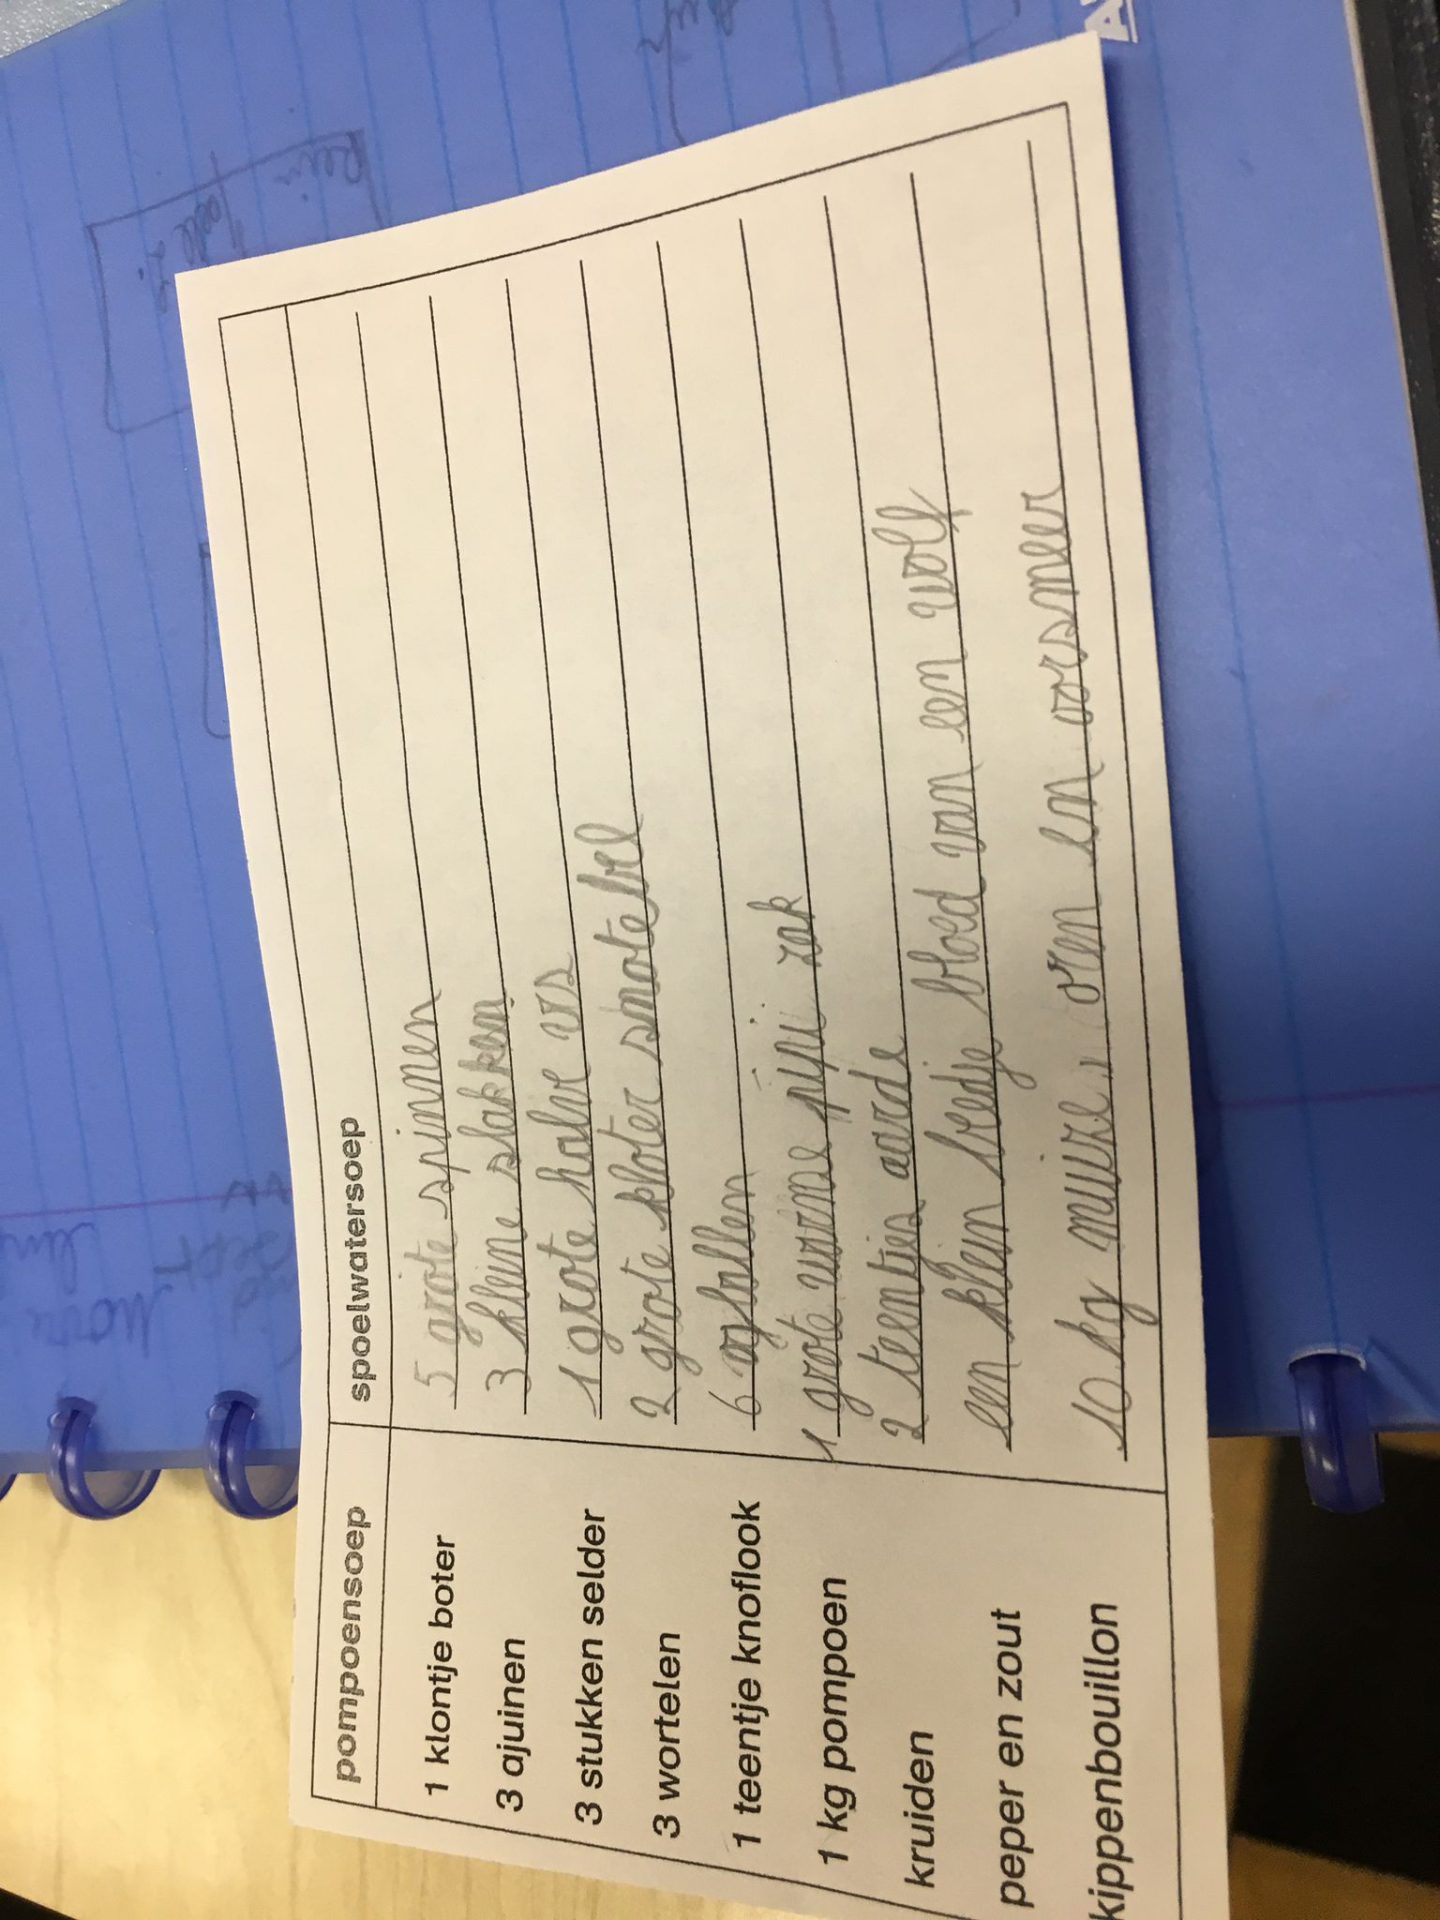 pompoensoep
1 klontje boter
3 ajuinen
3 stukken selder
3 wortelen
1 teentje knoflook
1 kg pompoen
kruiden
peper en zout
kippenbouillon
spoelwatersoep
5 grote spinnen
3 kleine slakken
1 grote halve vis
2 grote kloter snotebel
6 oogballen
1 grote warme pipi zak
2 teentjes aarde
een klein beedje bloed van een wolf
10 kg muize, oren en oorsmeer